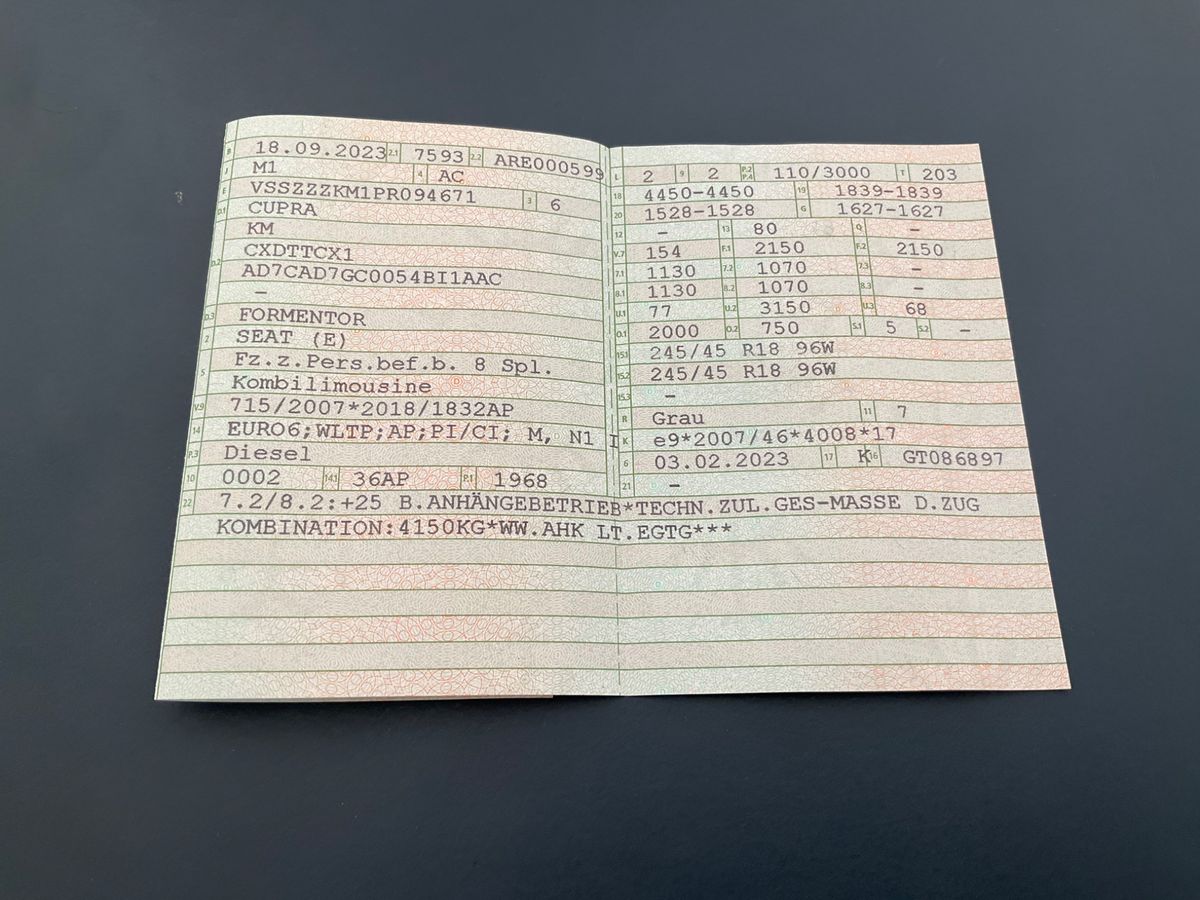 B 18.09.2023 2.1 7593 2.2 ARE000599
J M1 4 AC
E VSSZZZKM1PR094671 3 6
D.1 CUPRA
KM
D.2 CXDTTCX1
AD7CAD7GC0054BI1AAC
–
D.3 FORMENTOR
2 SEAT (E)
5 Fz.z.Pers.bef.b. 8 Spl.
Kombilimousine
V.9 715/2007*2018/1832AP
14 EURO6;WLTP;AP;PI/CI; M, N1 I
P.3 Diesel
10 0002 14.1 36AP P.1 1968
L 2 9 2 P.2 P.4 110/3000 T 203
18 4450-4450 19 1839-1839
20 1528-1528 G 1627-1627
12 – 13 80 Q –
V.7 154 F.1 2150 F.2 2150
7.1 1130 7.2 1070 7.3 –
8.1 1130 8.2 1070 8.3 –
U.1 77 U.2 3150 U.3 68
O.1 2000 O.2 750 S.1 5 S.2 –
15.1 245/45 R18 96W
15.2 245/45 R18 96W
15.3 –
R Grau 11 7
K e9*2007/46*4008*17
6 03.02.2023 17 K 16 GT086897
21 –
22 7.2/8.2:+25 B.ANHÄNGEBETRIEB*TECHN.ZUL.GES-MASSE D.ZUG
KOMBINATION:4150KG*WW.AHK LT.EGTG***